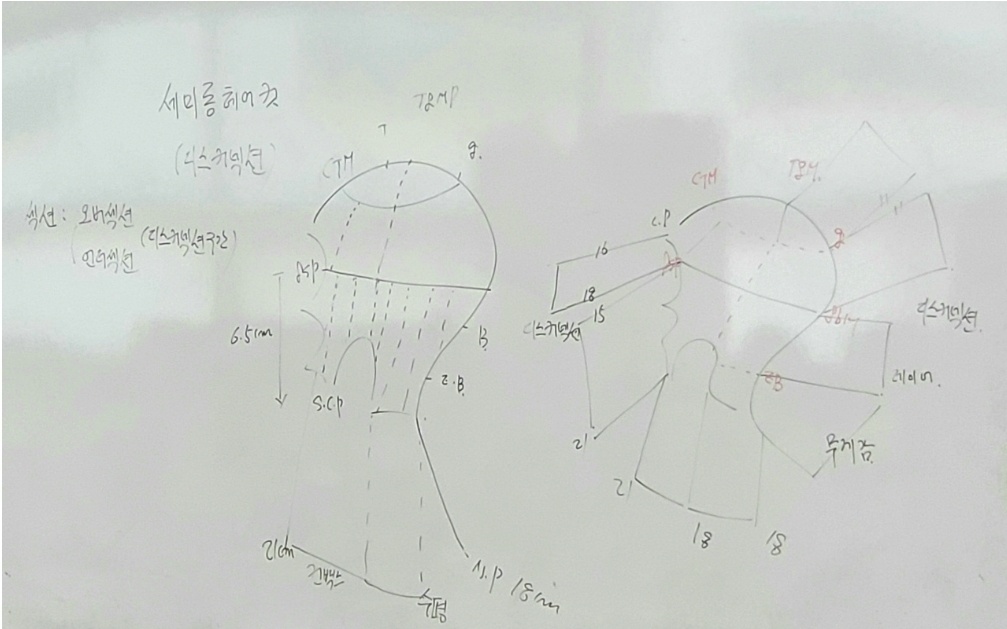 세미롱 헤어 컷
(디스커넥션)
섹션 : 오버섹션
언더섹션
(디스커넥션 구간)
T
T2MP
CTM
6.5cm
S.C.P
B.
2.B
21cm
전백스
수평
N.P 18cm
CTM
T2M.
C.P
16
18
15
디스커넥션
11
디스커넥션
레이어.
무게감
2B
21
21
18
18